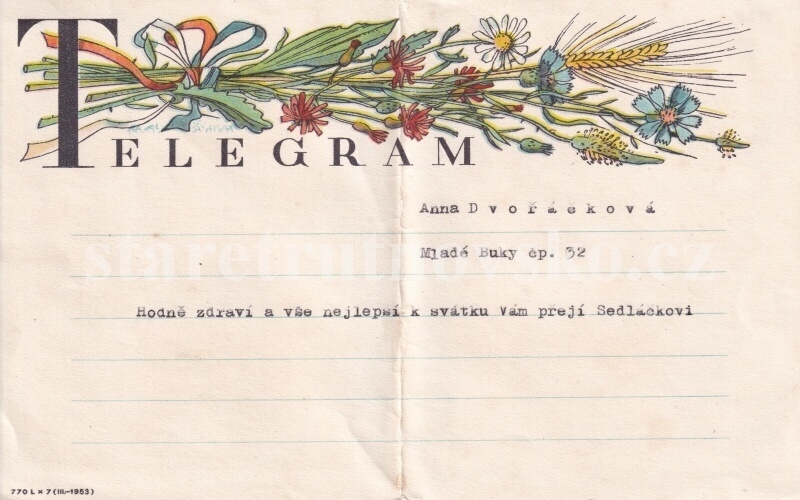 TELEGRAM
Anna Dvořáčková
Mladé Buky čp. 32
Hodně zdraví a vše nejlepší k svátku Vám přejí Sedláčkovi
770 L × 7 (III.-1953)